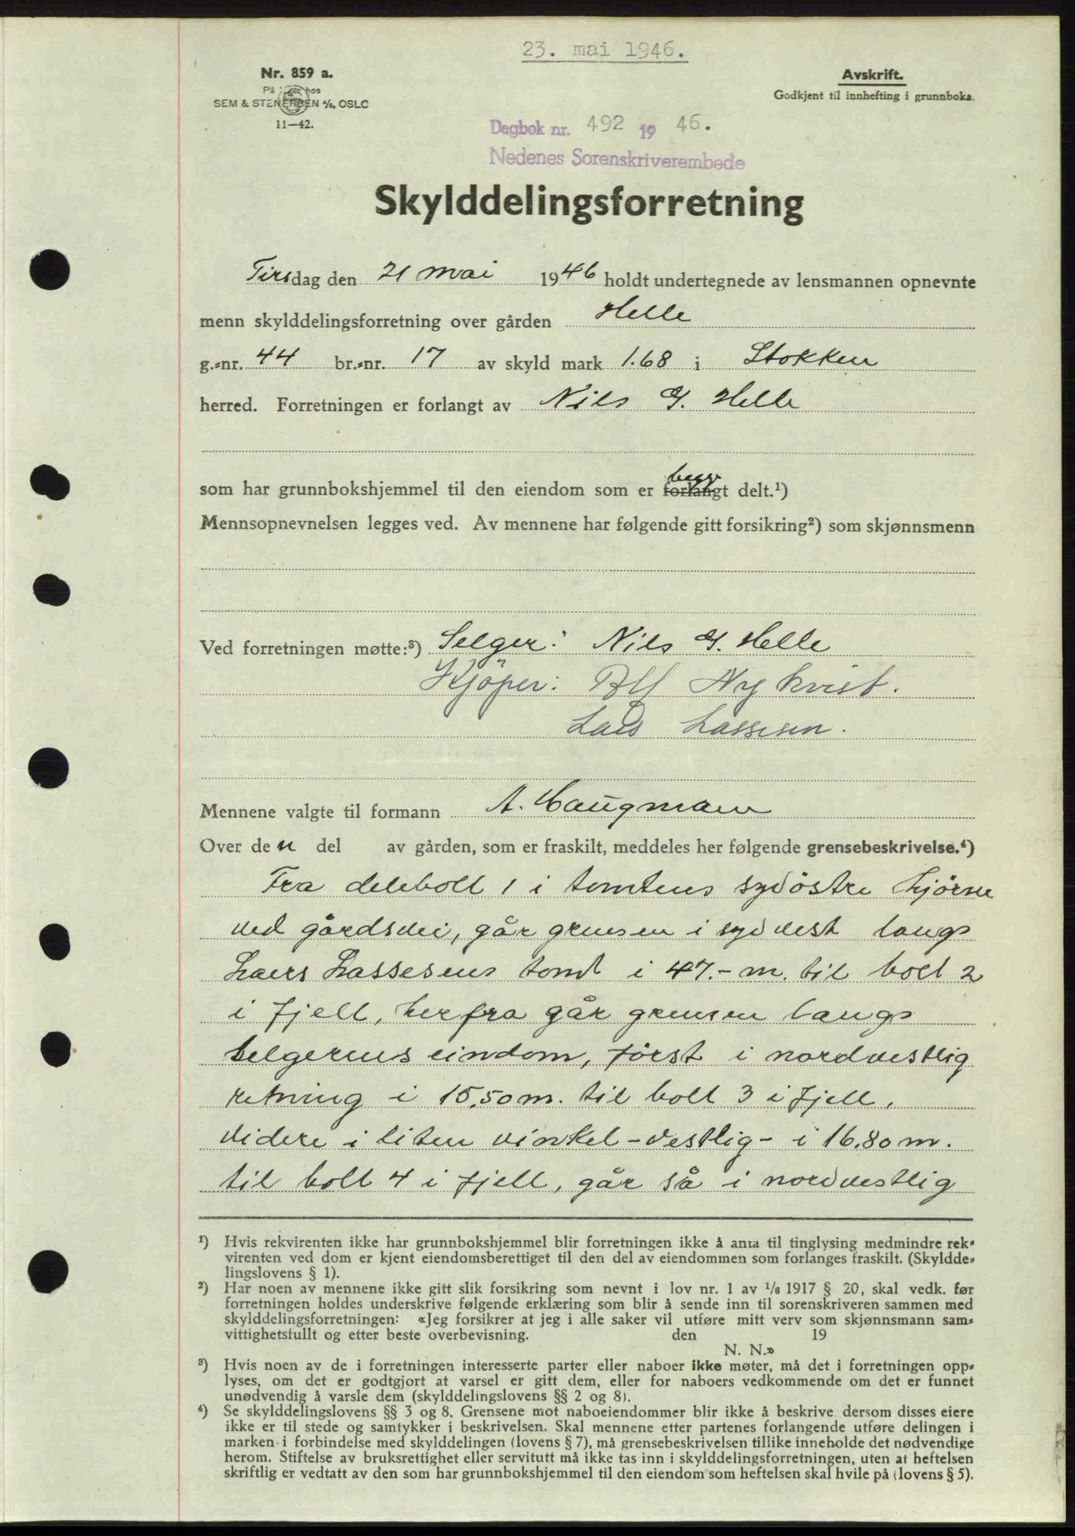 23. mai 1946.
Nr. 859 a.
På lager hos
SEM & STENERSEN A/S, OSLO
11—42.
Avskrift.
Godkjent til innhefting i grunnboka.
Dagbok nr. 492 19 46.
Nedenes Sorenskriverembede
Skylddelingsforretning
Tirsdag den 21 mai 1946 holdt undertegnede av lensmannen opnevnte
menn skylddelingsforretning over gården Helle
g.-nr. 44 br.-nr. 17 av skyld mark 1.68 i Stokken
herred. Forretningen er forlangt av Nils G. Helle
som har grunnbokshjemmel til den eiendom som er forlangt delt.¹)
Mennsopnevnelsen legges ved. Av mennene har følgende gitt forsikring²) som skjønnsmenn
Ved forretningen møtte:³) Selger: Nils G. Helle
Kjöper: Nykvist.
Lars Lassesen.
Mennene valgte til formann A. Haugmann
Over den del av gården, som er fraskilt, meddeles her følgende grensebeskrivelse.⁴)
Fra delebolt 1 i tomtens sydöstre hjörne
ved gårdsvei, går grensen i sydvest langs
Lars Lassesens tomt i 47.- m. til bolt 2
i fjell, herfra går grensen langs
selgerens eindom, först i nordvestlig
retning i 15.50 m. til bolt 3 i fjell,
videre i liten vinkel - vestlig - i 16.80 m.
til bolt 4 i fjell, går så i nordvestlig
¹) Hvis rekvirenten ikke har grunnbokshjemmel blir forretningen ikke å anta til tinglysing medmindre rek-
virenten ved dom er kjent eiendomsberettiget til den del av eiendommen som forlanges fraskilt. (Skyldde-
lingslovens § 1).
²) Har noen av mennene ikke gitt slik forsikring som nevnt i lov nr. 1 av 1/6 1917 § 20, skal vedk. før
forretningen holdes underskrive følgende erklæring som blir å sende inn til sorenskriveren sammen med
skylddelingsforretningen: «Jeg forsikrer at jeg i alle saker vil utføre mitt verv som skjønnsmann sam-
vittighetsfullt og etter beste overbevisning. den 19
N. N.»
³) Hvis noen av de i forretningen interesserte parter eller naboer ikke møter, må det i forretningen opp-
lyses, om det er godtgjort at varsel er gitt dem, eller for naboers vedkommende om det er funnet
unødvendig å varsle dem (skylddelingslovens §§ 2 og 8).
⁴) Se skylddelingslovens §§ 3 og 8. Grensene mot naboeiendommer blir ikke å beskrive dersom disses eiere
ikke er til stede og samtykker i beskrivelsen. Skal mennene etter partenes forlangende utføre delingen i
marken i forbindelse med skylddelingen (lovens § 7), må grensebeskrivelsen tillike inneholde det nødvendige
herom. Stiftelse av bruksrettighet eller servitutt må ikke tas inn i skylddelingsforretningen, uten at heftelsen
skriftlig er vedtatt av den som har grunnbokshjemmel til den eiendom som heftelsen skal hvile på (lovens § 5).